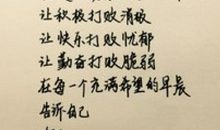 让积极打败消极
让快乐打败忧郁
让勤奋打败脆弱
在每一个充满希望的早晨
告诉自己